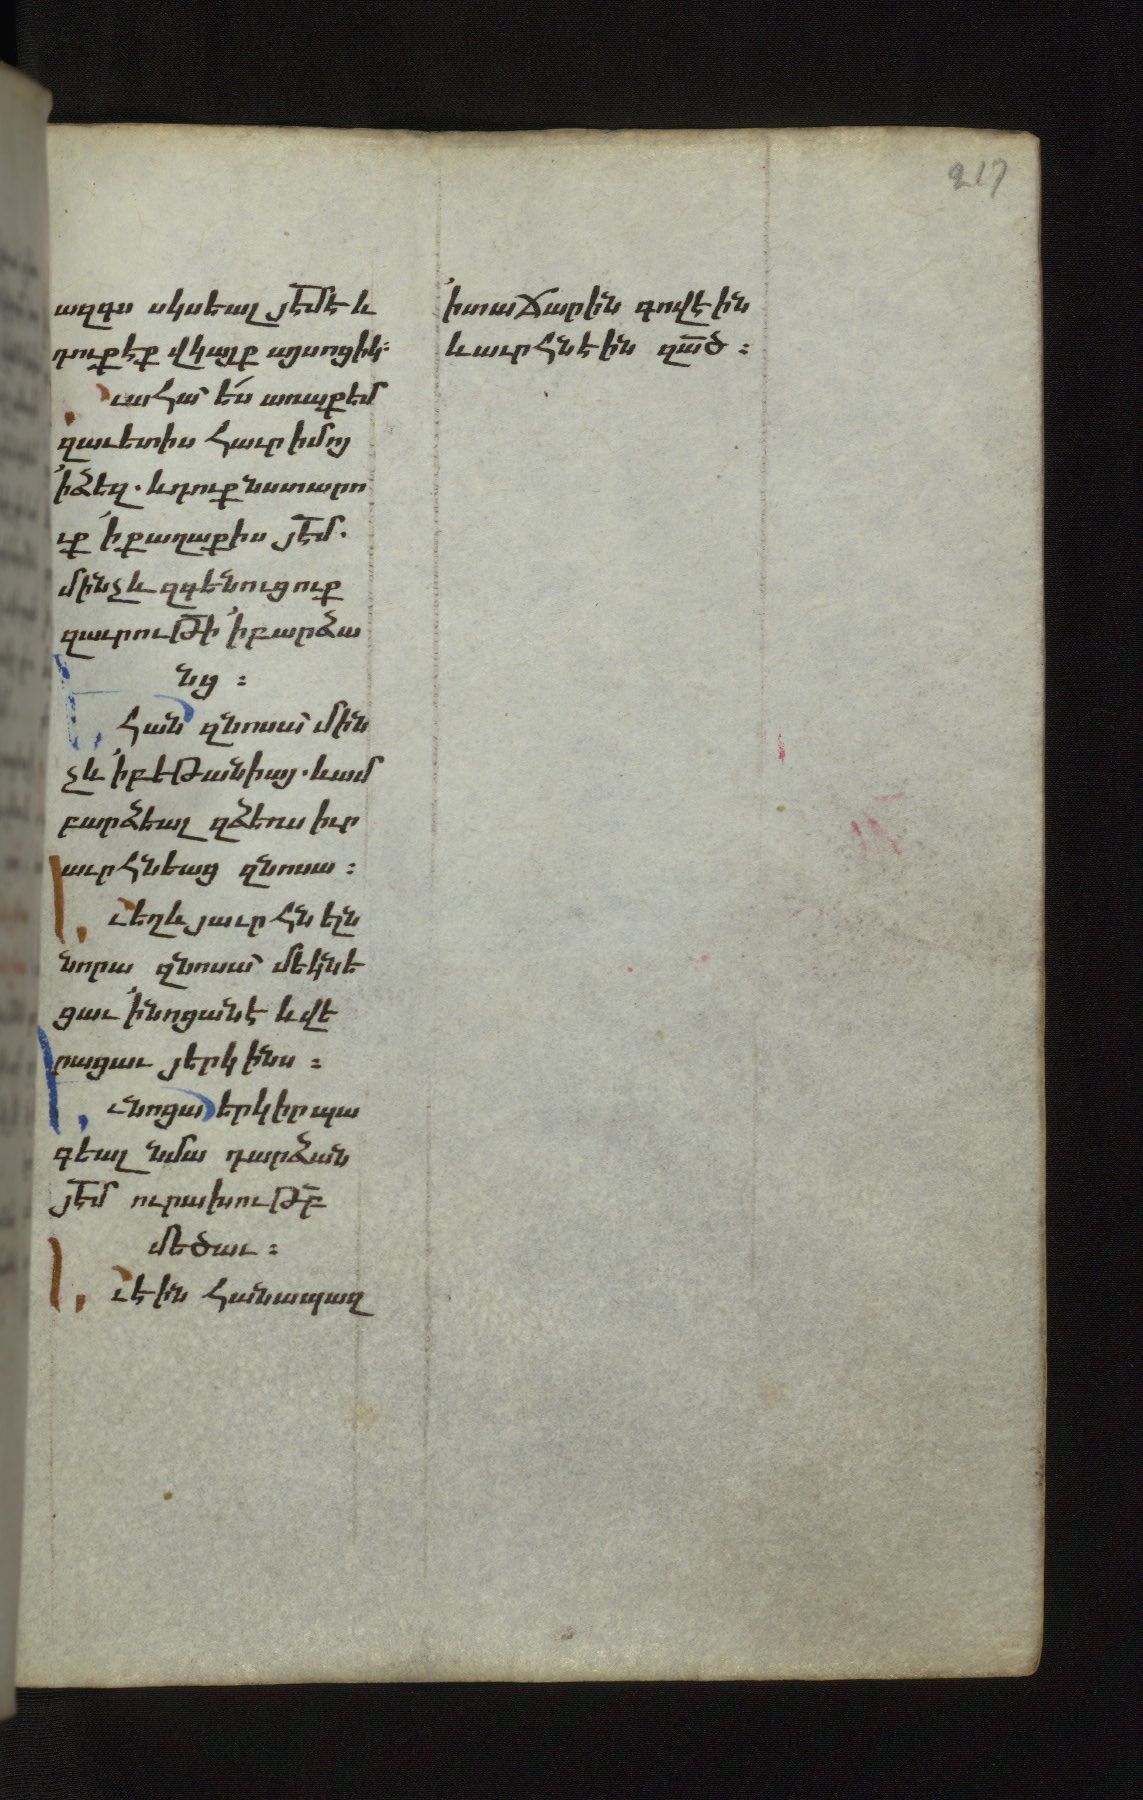 217
ազգս սկսեալ յե՟մէ և
դուք էք վկայք այսոցիկ։
ւահա՛ ե՛ս առաքեմ
զաւետիս հաւր իմոյ
՚ի ձեզ. և դուք նստարո
ւք ՚ի քաղաքիս յե՟մ.
մինչև զգենուցուք
զաւրութի՟ ՚ի բարձա
նց ։
հան զնոսա՛ մին
չև ՚ի բէթանիայ. և ամ
բարձեալ զձեռս իւր
աւրհնեաց զնոսա ։
ւեղև յաւրհնելն
նորա զնոսա՛ մեկնե
ցաւ ՚ի նոցանէ և վե
րացաւ յերկինս ։
ւնոցա երկիրպա
գեալ նմա դարձան
յե՟մ ուրախութբ՟
մեծաւ ։
ւէին հանապազ
՚ի տաճարին գովէին
և աւրհնէին զա՟ծ ։